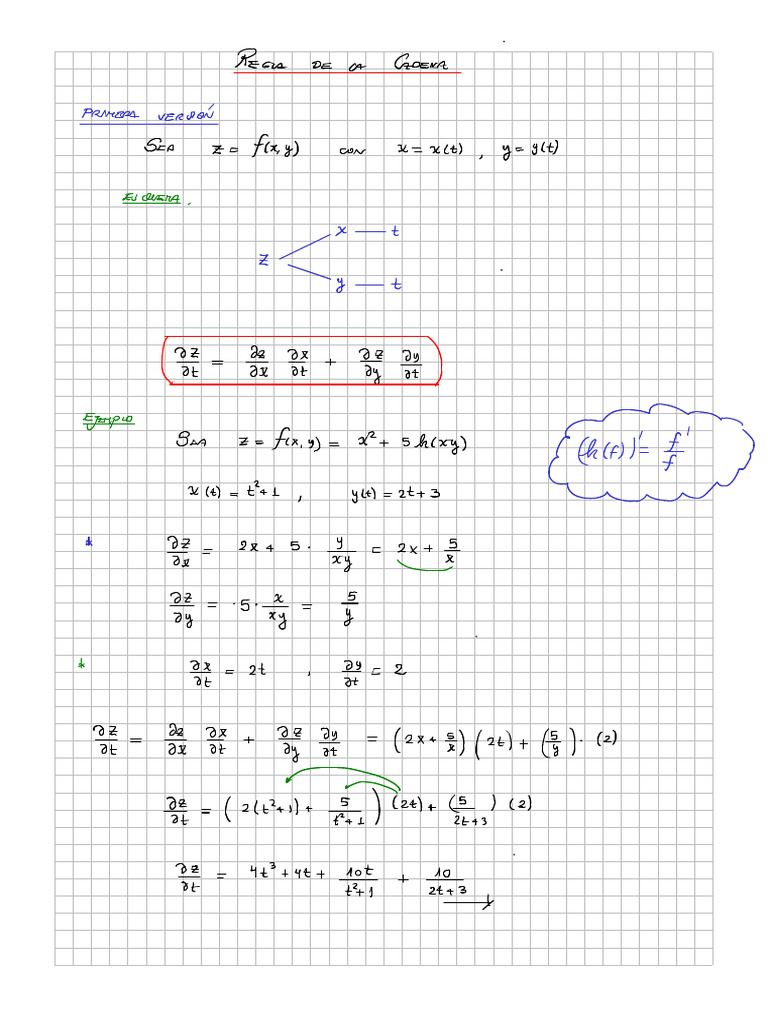 REGLA DE LA CADENA
PRIMERA VERSIÓN
SEA z = f(x,y) CON x = x(t) , y = y(t)
ESQUEMA.
x — t
z
y — t
∂z/∂t = ∂z/∂x ∂x/∂t + ∂z/∂y ∂y/∂t
EJEMPLO
SEA z = f(x,y) = x² + 5 ln(xy)
(ln(f))' = f'/f
x(t) = t²+1 , y(t) = 2t+3
* ∂z/∂x = 2x + 5 · y/xy = 2x + 5/x
∂z/∂y = ·5· x/xy = 5/y
* ∂x/∂t = 2t , ∂y/∂t = 2
∂z/∂t = ∂z/∂x ∂x/∂t + ∂z/∂y ∂y/∂t = (2x + 5/x) (2t) + (5/y) · (2)
∂z/∂t = (2(t²+1) + 5/t²+1) (2t) + (5/2t+3) (2)
∂z/∂t = 4t³ + 4t + 10t/t²+1 + 10/2t+3